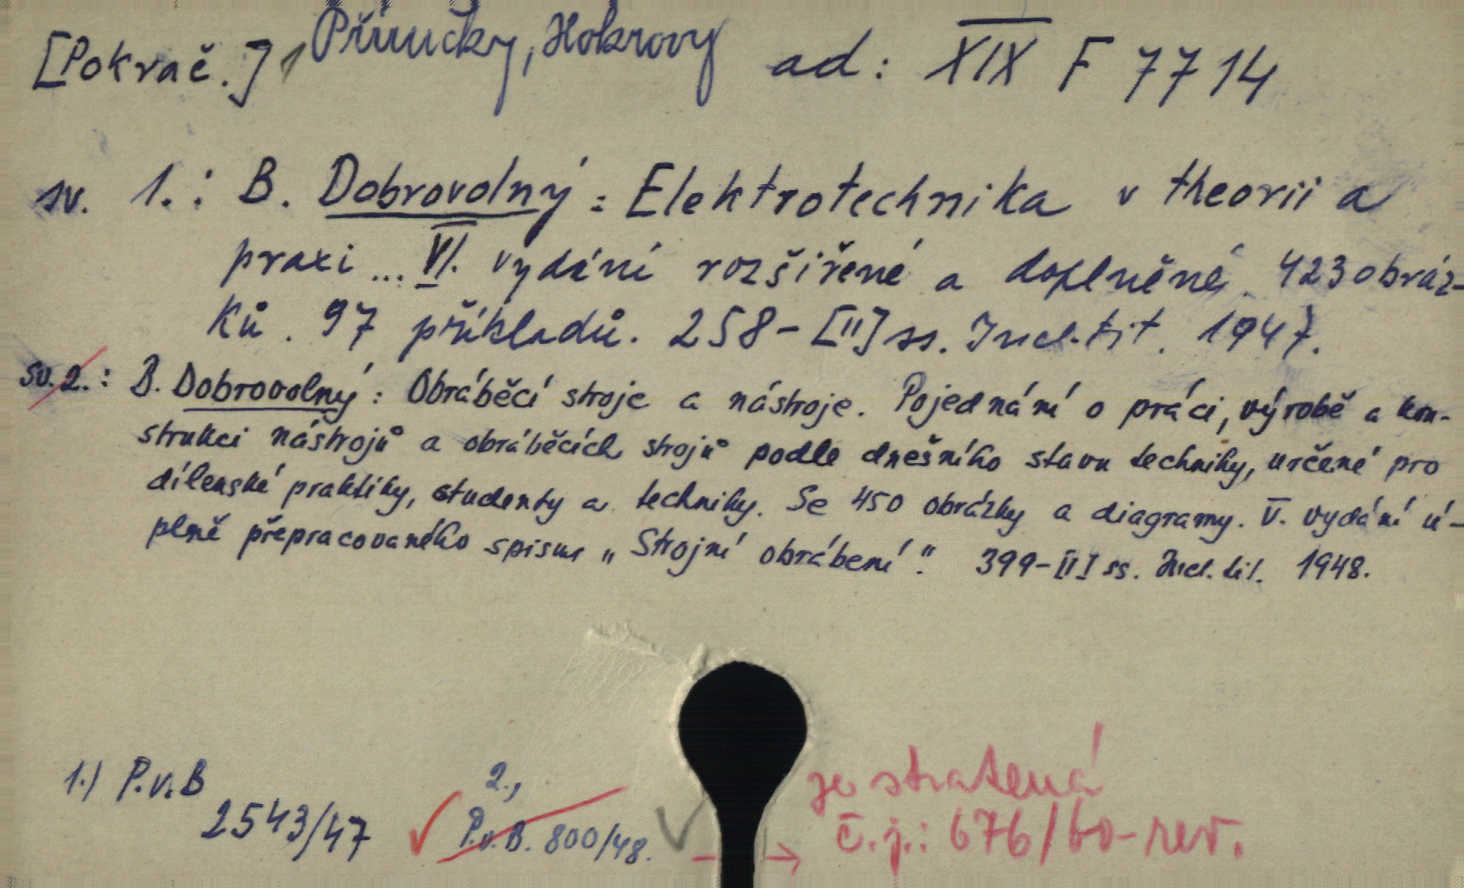 [Pokrač.] 1 Příručky, Hokrovy ad: XIX F 7714
sv. 1.: B. Dobrovolný: Elektrotechnika v theorii a
praxi ... VI. vydání rozšířené a doplněné. 423 obráz-
ků. 97 příkladů. 258-[II] ss. Incl. tit. 1947.
sv. 2.: B. Dobrovolný: Obráběcí stroje a nástroje. Pojednání o práci, výrobě a kon-
strukci nástrojů a obráběcích strojů podle dnešního stavu techniky, určené pro
dílenské praktiky, studenty a techniky. Se 450 obrázky a diagramy. V. vydání ú-
plně přepracovaného spisu „Strojní obrábení". 399-[I] ss. Incl. tit. 1948.
1.) P.v.B
2543/47
2.,
P.v.B. 800/48.
je stratená
č.j.: 676/60-rev.